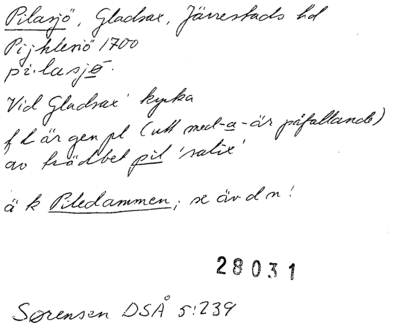 Pilasjö, Gladsax, Järrestads hd
Pijhlesiö 1700
pi·lasjö.
Vid Gladsax kyrka
f l är gen pl (utt med -a- är påfallande)
av trädbet pil 'salix'
ä k Piledammen; se äv d n!
28031
Sørensen DSÅ 5:239